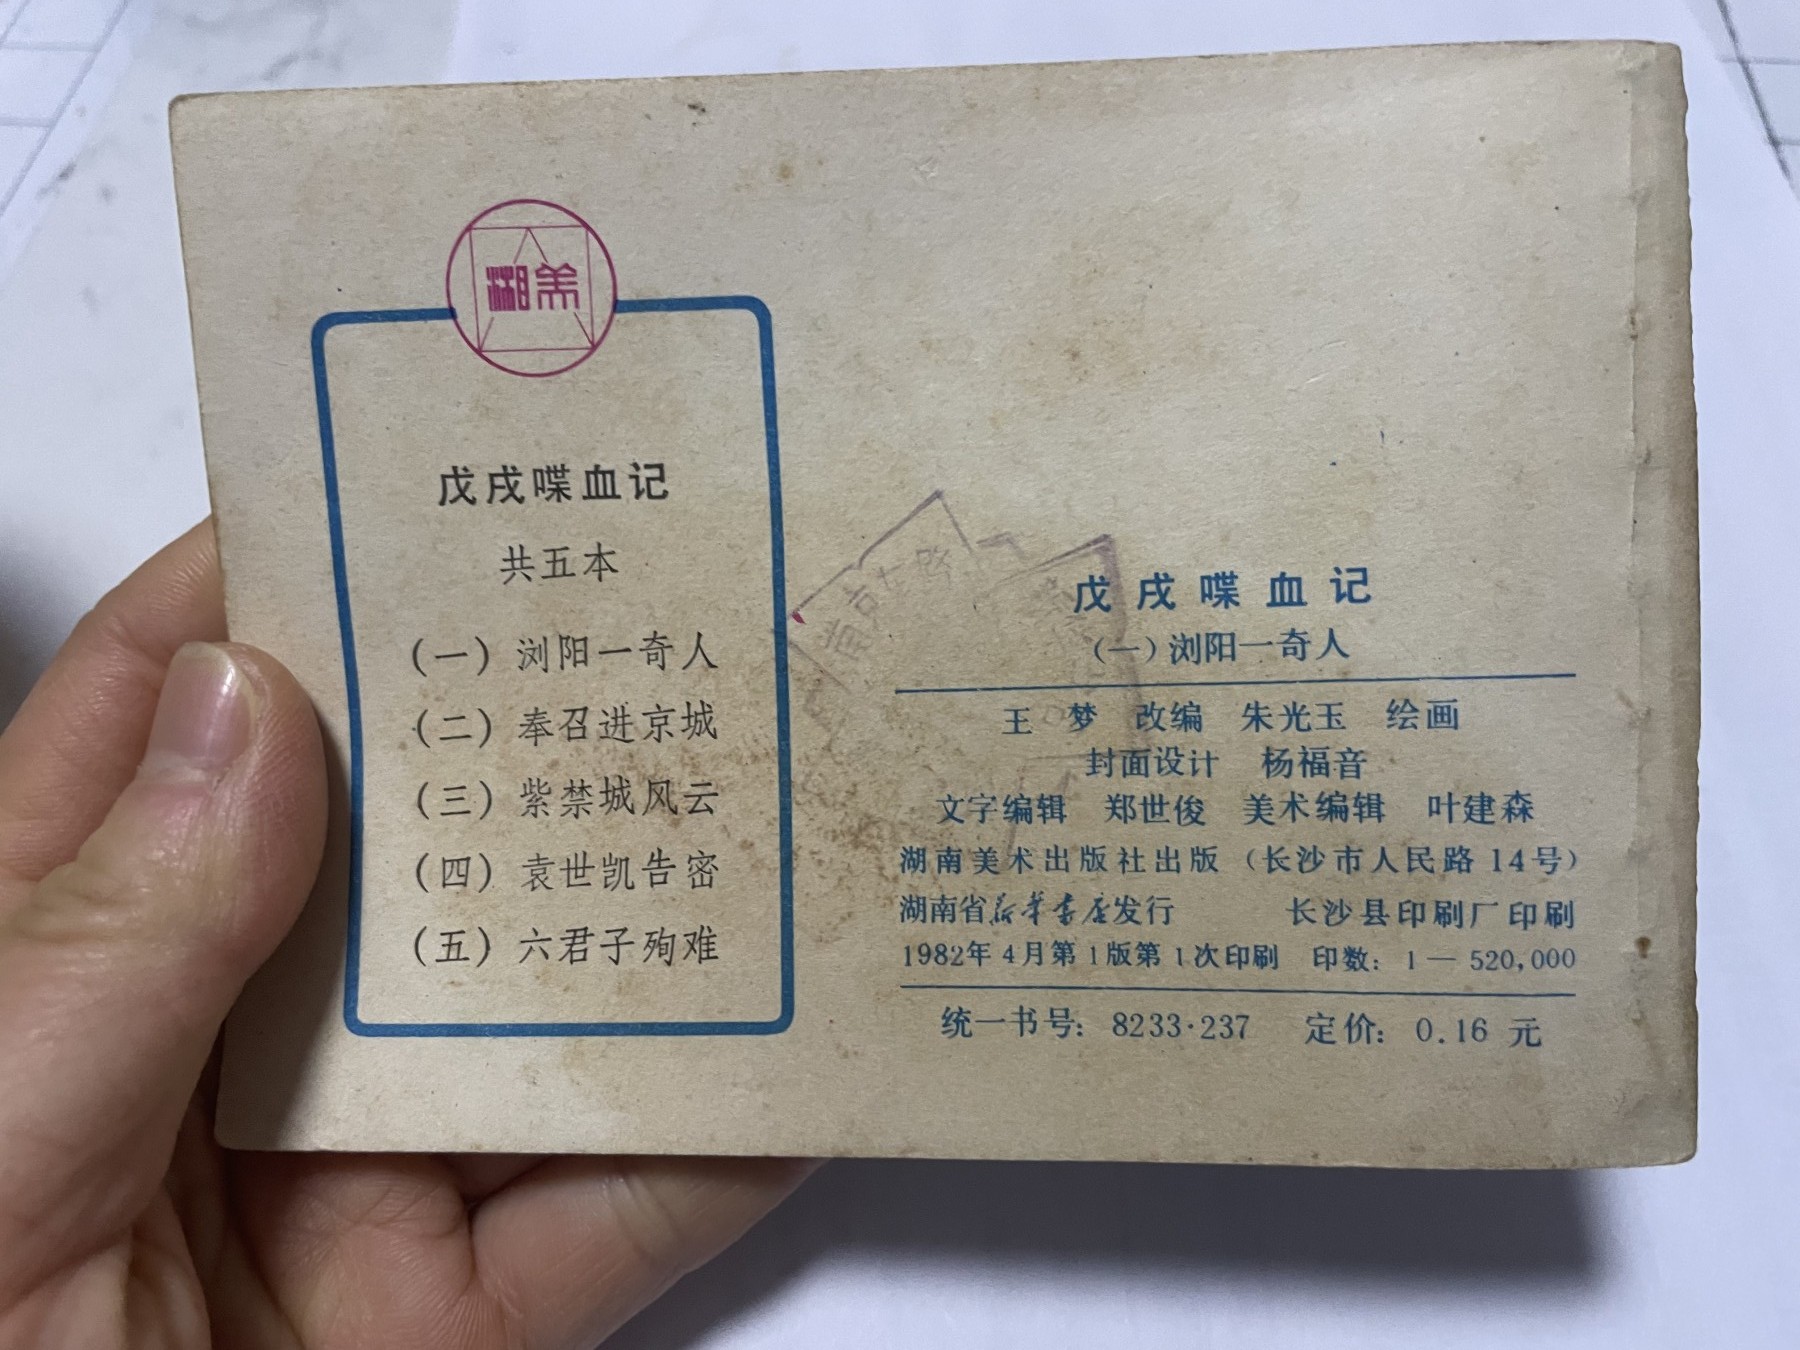 湘美
戊戌喋血记
共五本
(一) 浏阳一奇人
(二) 奉召进京城
(三) 紫禁城风云
(四) 袁世凯告密
(五) 六君子殉难
戊戌喋血记
(一) 浏阳一奇人
王 梦 改编 朱光玉 绘画
封面设计 杨福音
文字编辑 郑世俊 美术编辑 叶建森
湖南美术出版社出版 (长沙市人民路 14号)
湖南省新华书店发行 长沙县印刷厂印刷
1982年 4月第 1版第 1次印刷 印数: 1 — 520,000
统一书号: 8233·237 定价: 0.16 元